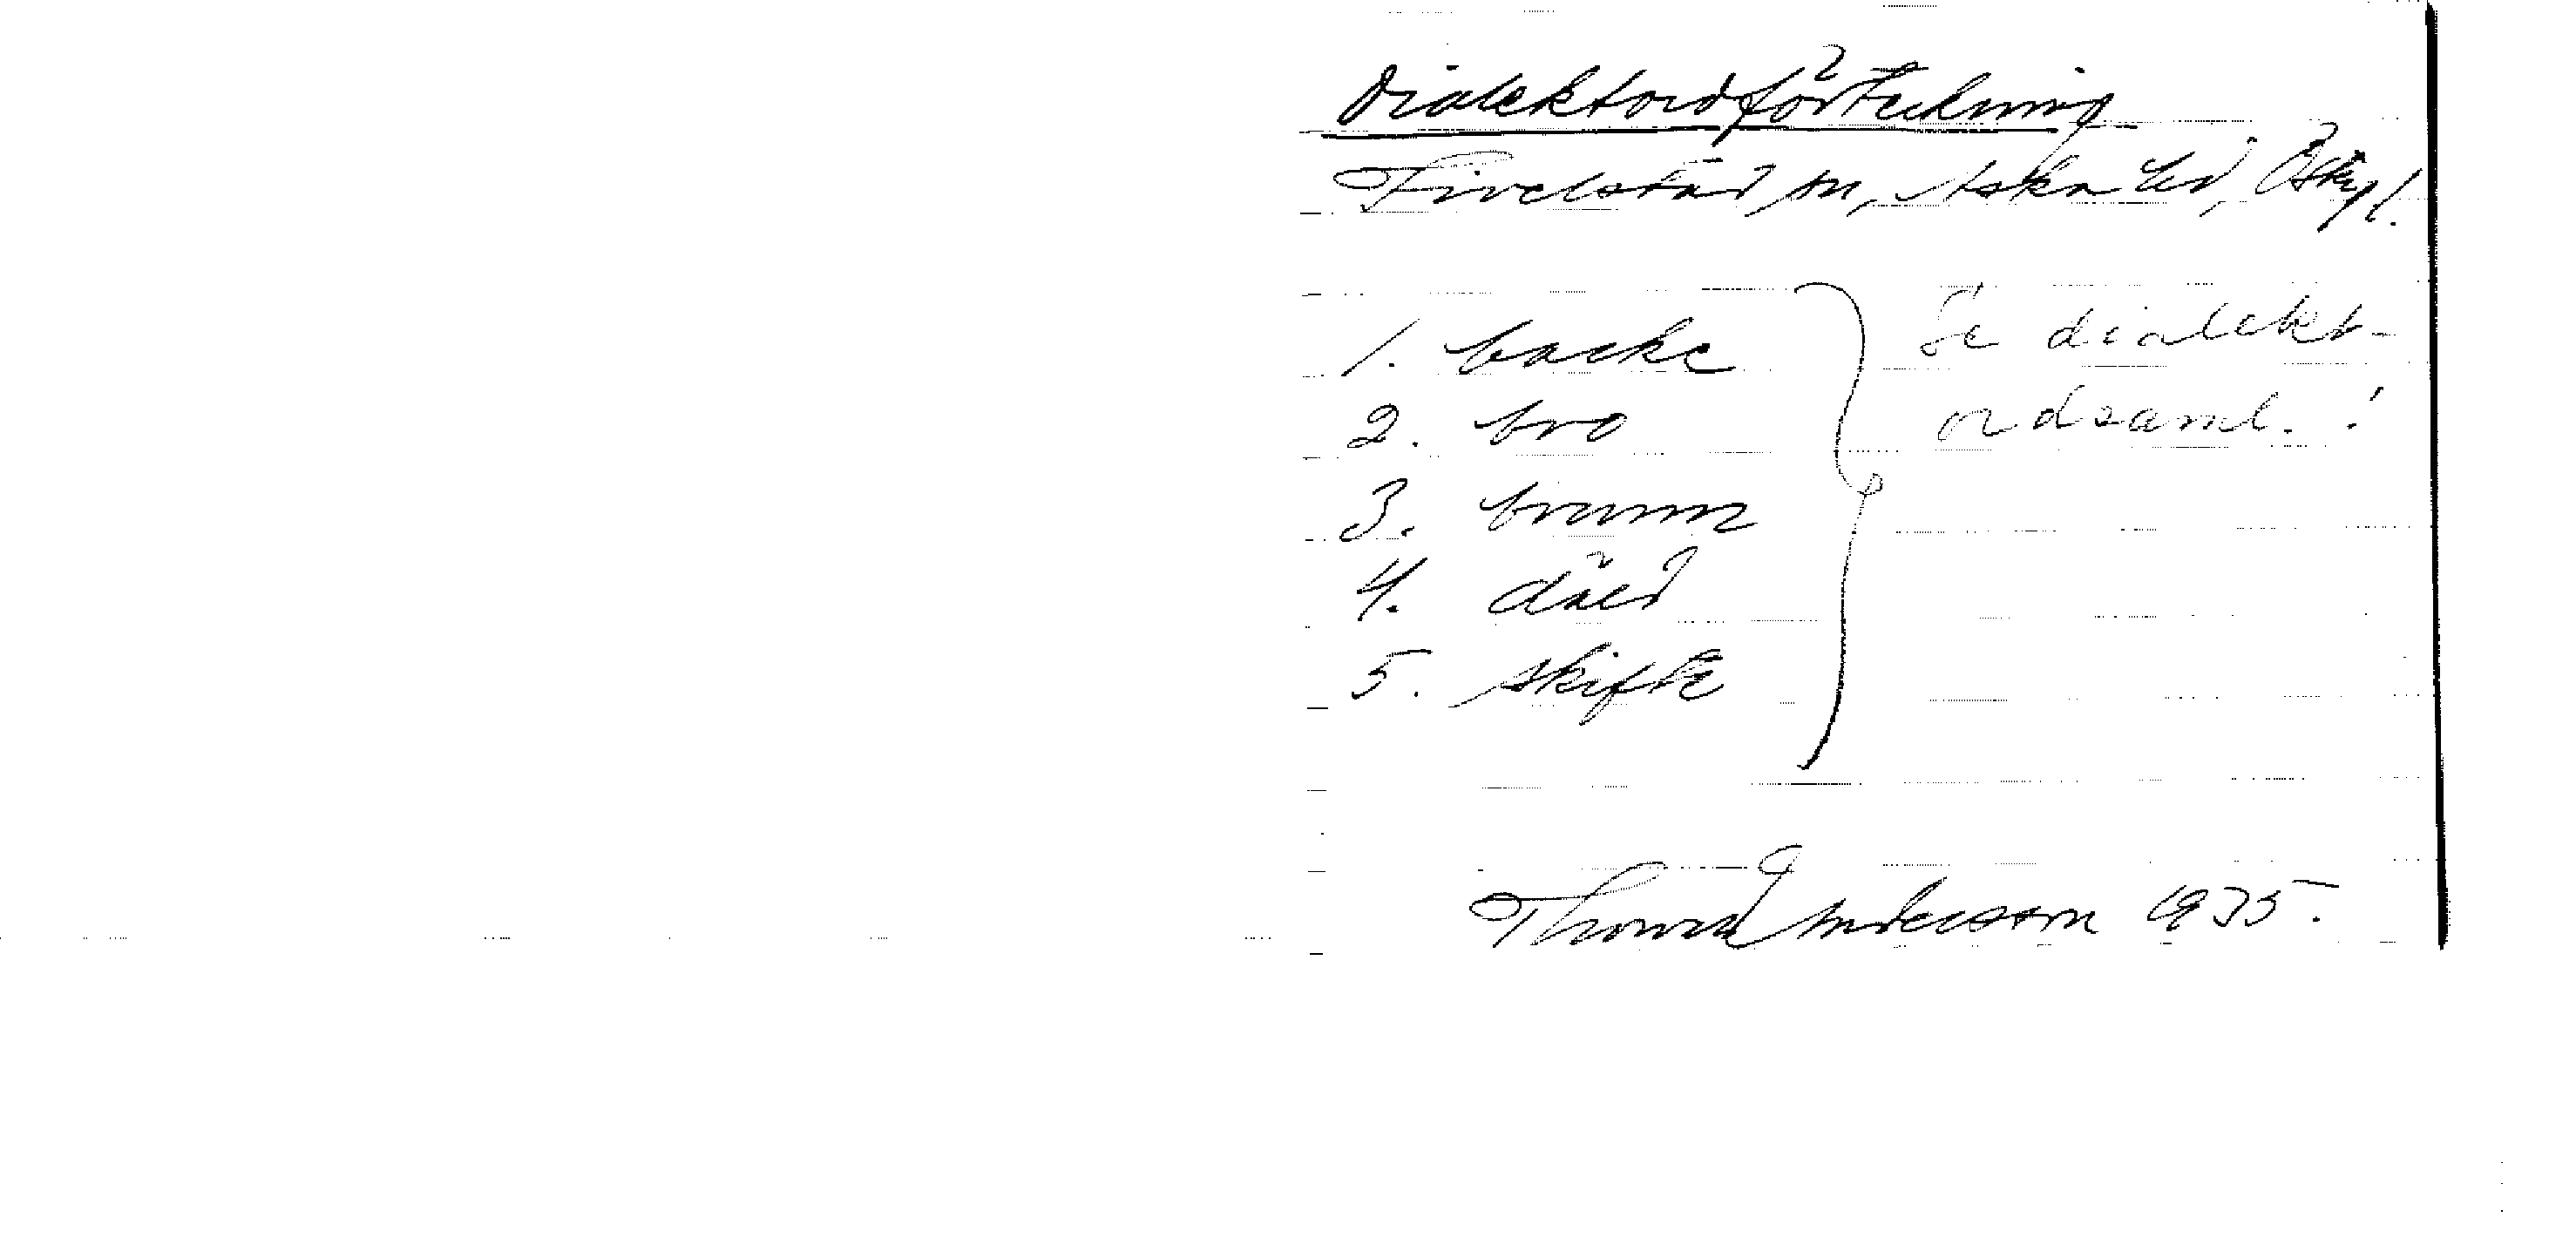 Dialektordförteckning
Fivelstad sn, Aska hd, Östergl.
1. backe
2. bro
3. brunn
4. däld
5. skifte
Se dialekt-
ordsaml.!
Thomas Andersson 1935.